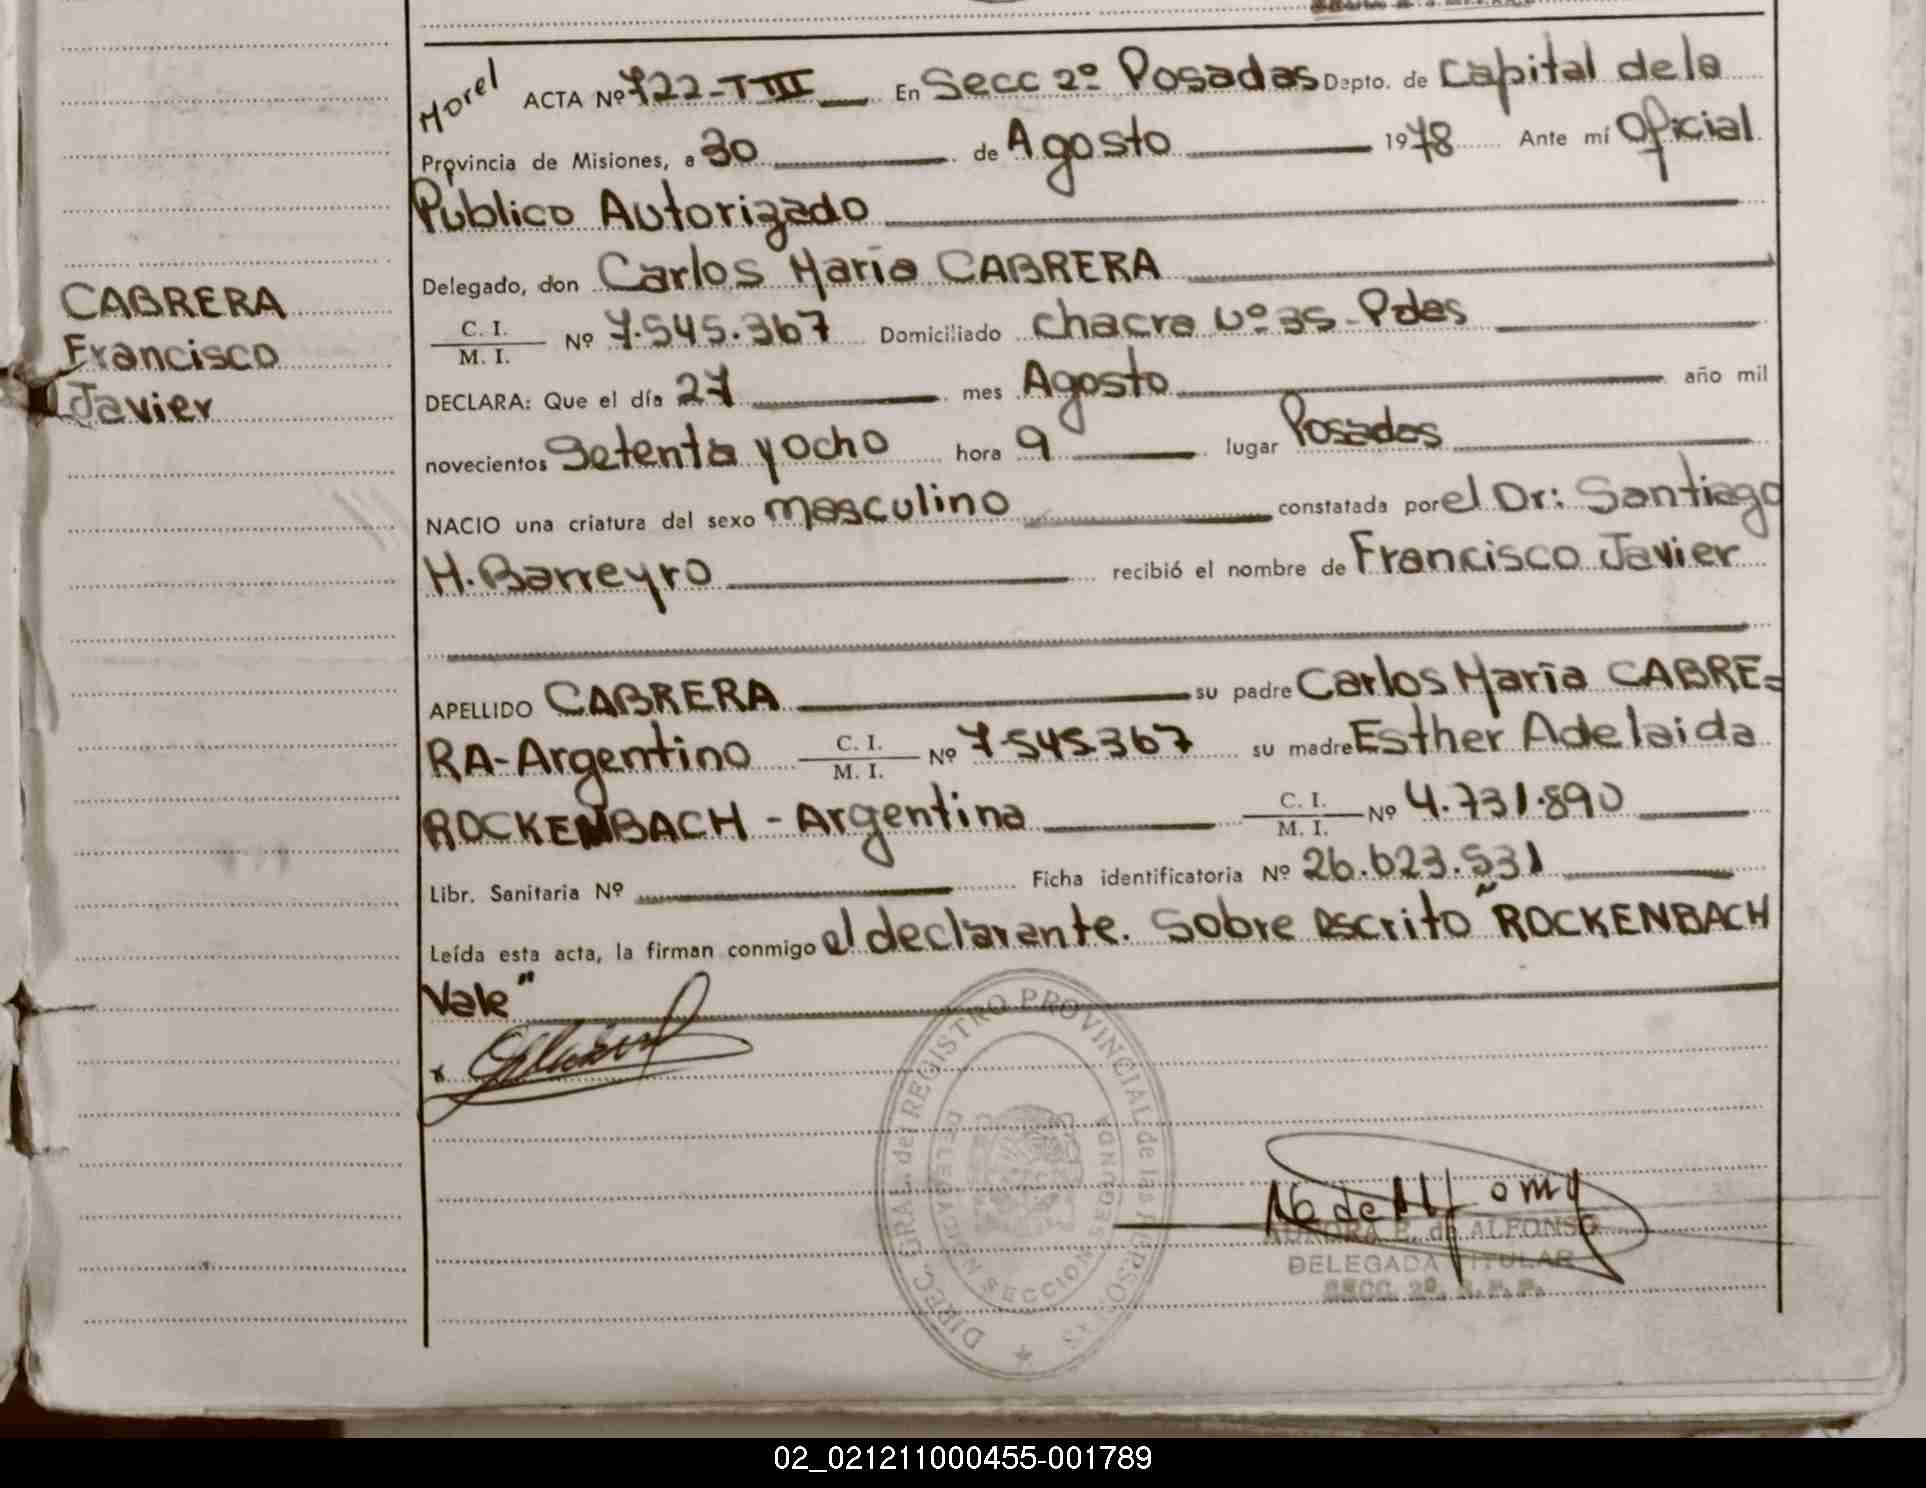 Morel ACTA Nº 722-TIII En Secc 2º Posadas Depto. de Capital de la
Provincia de Misiones, a 30 de Agosto 1978 Ante mí Oficial
Publico Autorizado
Delegado, don Carlos Maria CABRERA
C. I. / M. I. Nº 7.545.367 Domiciliado chacra Nº 35 - Pdas
CABRERA
Francisco
Javier
DECLARA: Que el día 27 mes Agosto año mil
novecientos setenta y ocho hora 9 lugar Posadas
NACIO una criatura del sexo masculino constatada por el Dr: Santiago
H. Barreyro recibió el nombre de Francisco Javier
APELLIDO CABRERA su padre Carlos Maria CABRE=
RA-Argentino C. I. / M. I. Nº 7.545.367 su madre Esther Adelaida
ROCKENBACH - Argentina C. I. / M. I. Nº 4.731.890
Libr. Sanitaria Nº Ficha identificatoria Nº 26.623.531
Leída esta acta, la firman conmigo el declarante. Sobre escrito "ROCKENBACH
Vale"
DIREC. GRAL. del REGISTRO PROVINCIAL de las PERSONAS
DELEGACION SECCION SEGUNDA
AURORA E. de ALFONSO
DELEGADA TITULAR
SECC. 2ª. R. P. P.
02_021211000455-001789